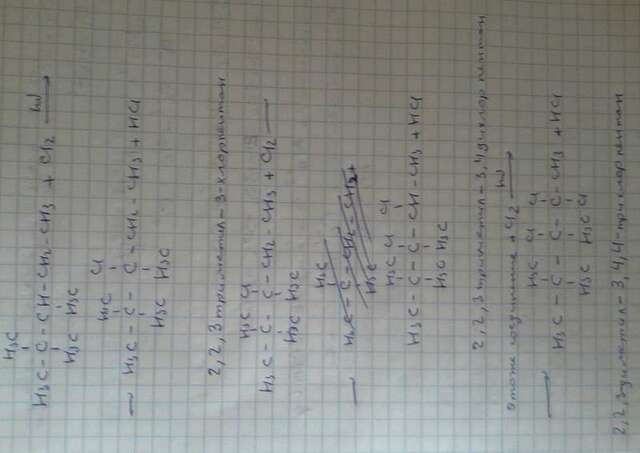 H₃C
H₃C-C-CH-CH₂-CH₃ + Cl₂ hν→
H₃C H₃C
H₃C Cl
→ H₃C-C-C-CH₂-CH₃ + HCl
H₃C H₃C
2,2,3триметил-3-хлорпентан
H₃C Cl
H₃C-C-C-CH₂-CH₃ + Cl₂ →
H₃C H₃C
H₃C
→
H₃C
H₃C Cl Cl
H₃C-C-C-CH-CH₃ + HCl
H₃C H₃C
2,2,3триметил-3,4дихлорпентан
+ Cl₂ hν→
H₃C Cl Cl
→ H₃C-C-C-C-CH₃ + HCl
H₃C H₃C Cl
3,4,4-трихлорпентан